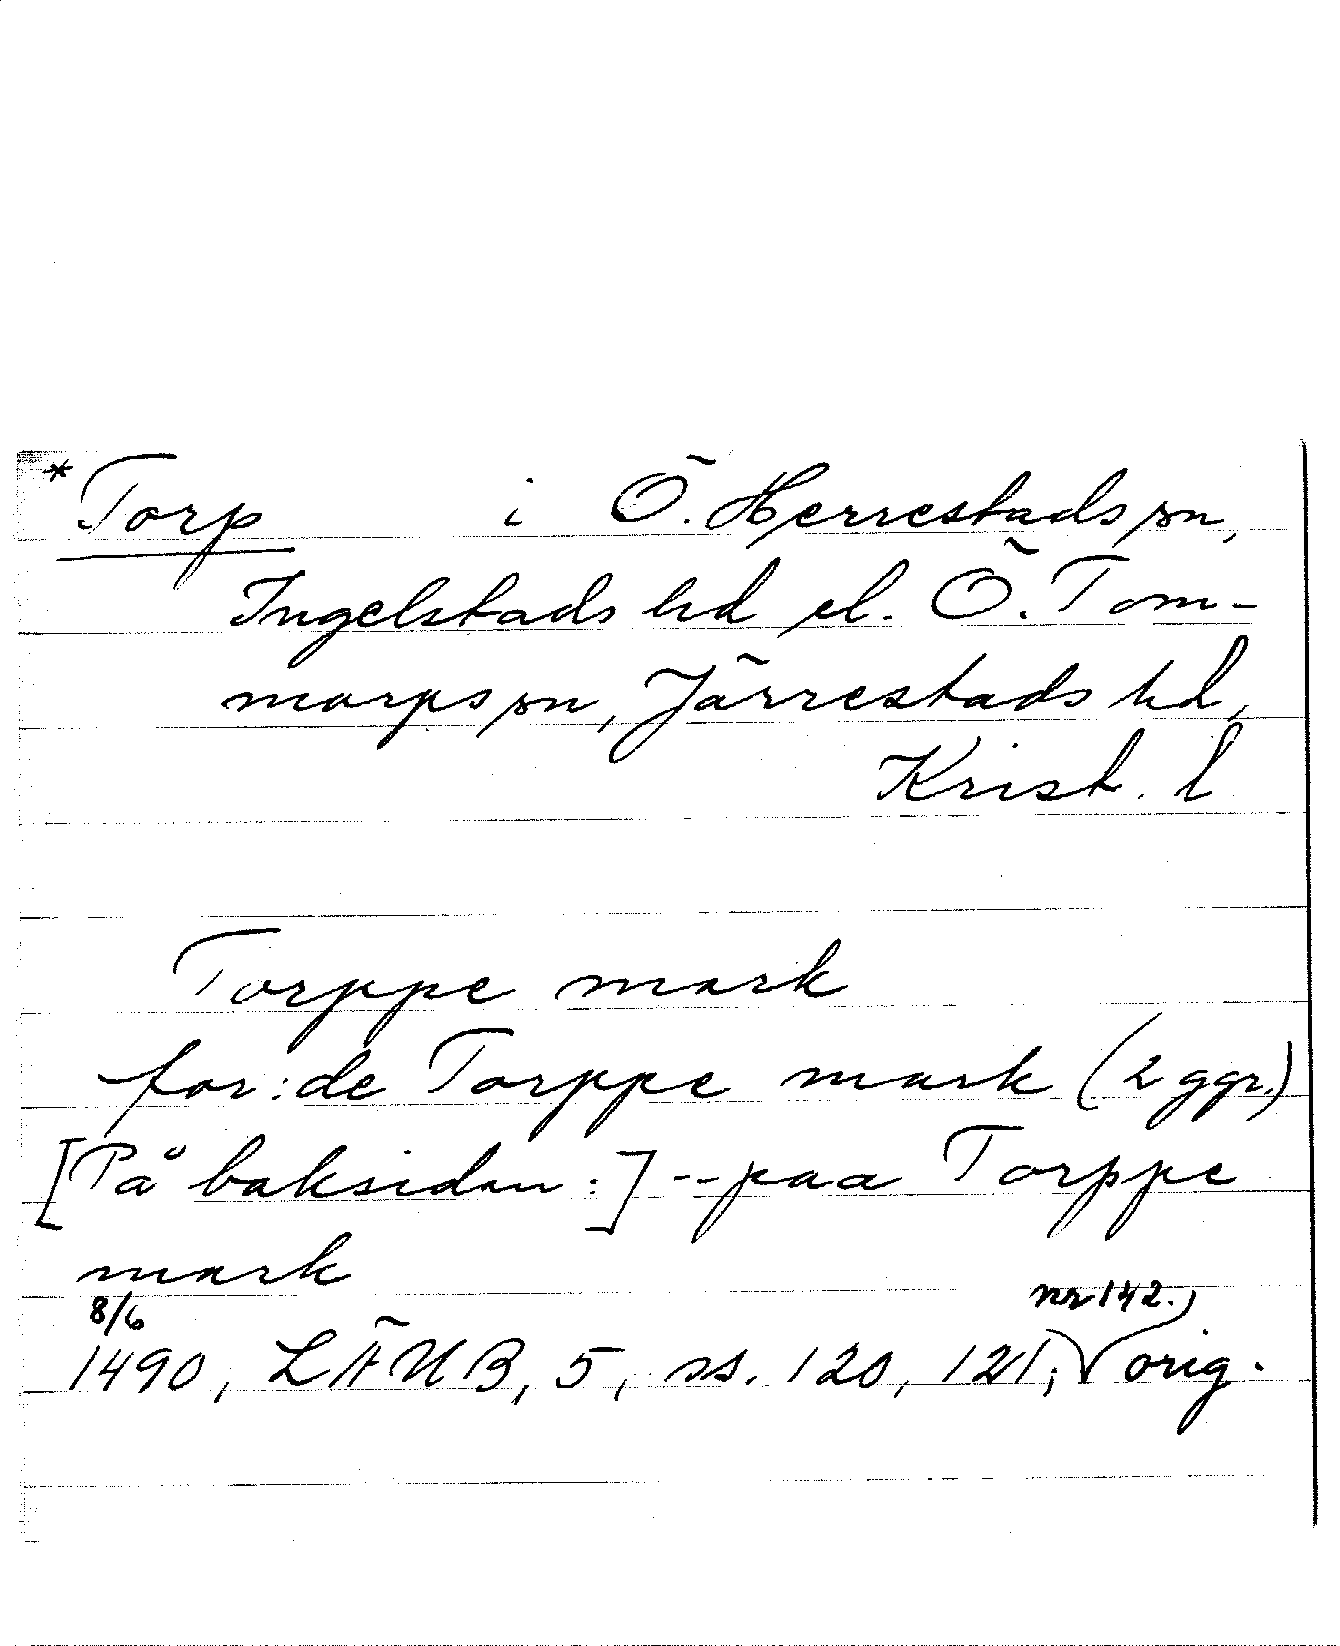 *Torp i Ö. Herrestads sn,
Ingelstads hd el. Ö. Tom-
marps sn, Järrestads hd,
Krist. l
Torppe mark
for:de Torppe mark (2 ggr.)
[På baksidan:] -- paa Torppe
mark
8/6 nr 142.
1490, LÄUB, 5, ss. 120, 121, orig.